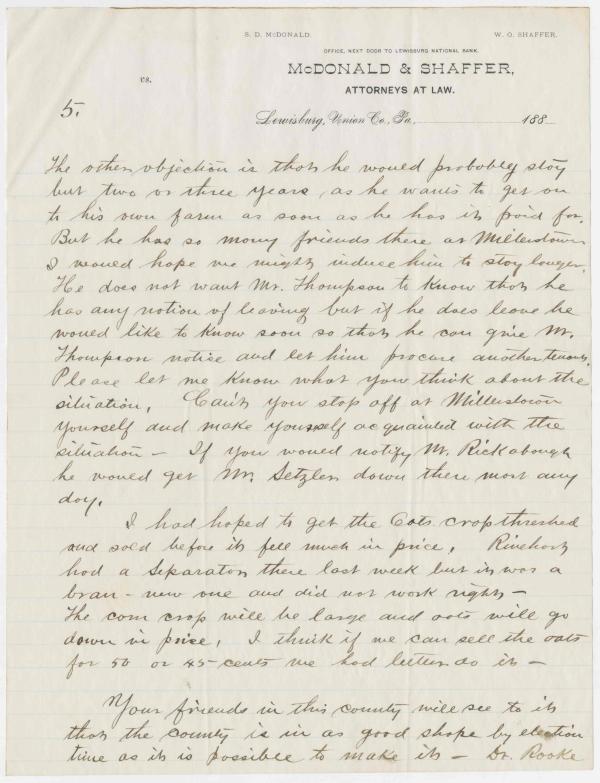 S. D. McDONALD.
W. O. SHAFFER.
OFFICE, NEXT DOOR TO LEWISBURG NATIONAL BANK.
McDONALD & SHAFFER,
ATTORNEYS AT LAW.
vs.
5.
Lewisburg, Union Co., Pa. 188
The other objection is that he would probably stay
but two or three years, as he wants to get on
to his own farm as soon as he has it paid for.
But he has so many friends there at Millerstown
I would hope we might induce him to stay longer.
He does not want Mr. Thompson to know that he
has any notion of leaving but if he does leave he
would like to know soon so that he can give Mr.
Thompson notice and let him procure another tenant.
Please let me know what you think about the
situation. Can't you stop off at Millerstown
yourself and make yourself acquainted with the
situation – If you would notify Mr. Rickabaugh
he would get Mr. Setzler down there most any
day.
I had hoped to get the Oats crop threshed
and sold before it fell much in price. Rinehart
had a Separator there last week but it was a
bran-new one and did not work right –
The corn crop will be large and oats will go
down in price. I think if we can sell the oats
for 50 or 45 cents we had better do it –
Your friends in this county will see to it
that the county is in as good shape by election
time as it is possible to make it – Dr. Rooke